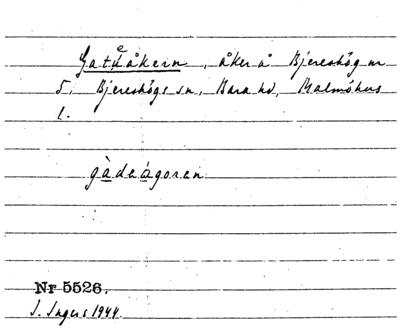 Gateåkern, åker å Bjereshög nr
5, Bjereshögs sn, Bara hd, Malmöhus
l.
gàdeágoren
Nr 5526.
I. Ingers 1944.